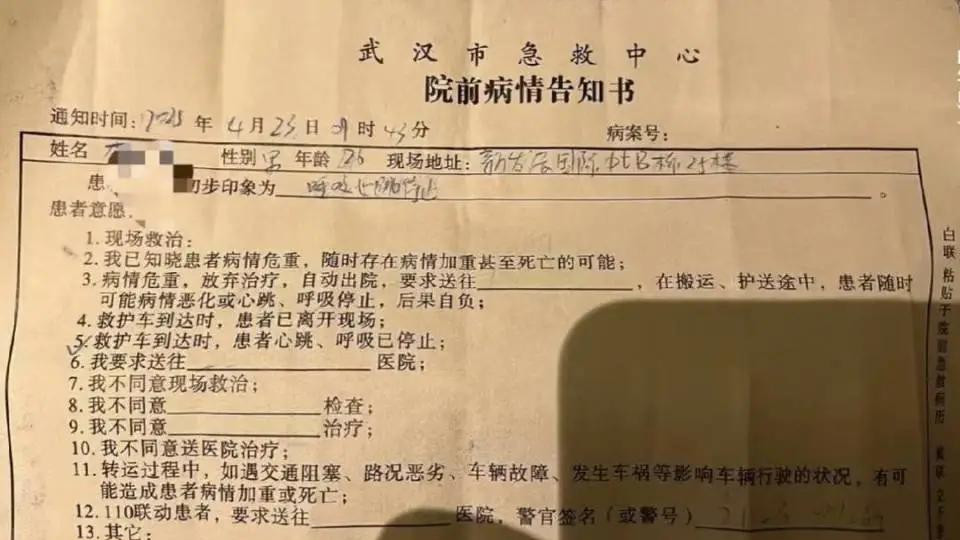 武汉市急救中心
院前病情告知书
通知时间：2025年4月23日 时43分 病案号：
姓名 性别 男 年龄 26 现场地址：新发 国际 栋25楼
患 初步印象为 呼吸心跳停止 。
患者意愿：
1.现场救治；
2.我已知晓患者病情危重，随时存在病情加重甚至死亡的可能；
3.病情危重，放弃治疗，自动出院，要求送往 ，在搬运、护送途中，患者随时
可能病情恶化或心跳、呼吸停止，后果自负；
4.救护车到达时，患者已离开现场；
5.救护车到达时，患者心跳、呼吸已停止；
6.我要求送往 医院；
7.我不同意现场救治；
8.我不同意 检查；
9.我不同意 治疗；
10.我不同意送医院治疗；
11.转运过程中，如遇交通阻塞、路况恶劣、车辆故障、发生车祸等影响车辆行驶的状况，有可
能造成患者病情加重或死亡；
12.110联动患者，要求送往 医院，警官签名（或警号）
13.其它：
白联 粘贴于院前急救病历